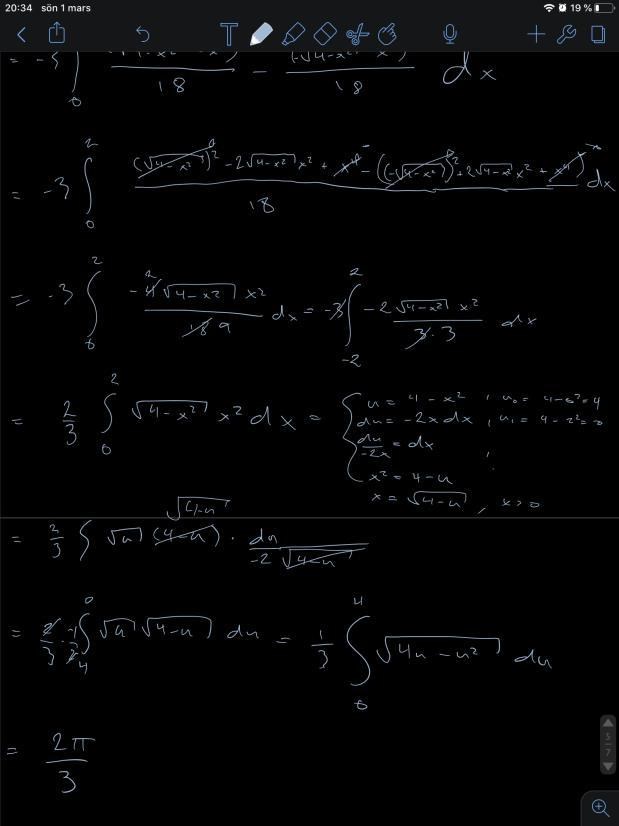 20:34 sön 1 mars 19 %
T
= -3 ∫₀ (√4-x² - x²)/18 - (-√4-x² x²)/18 dx
= -3 ∫₀² ((√4-x²)² - 2√4-x² x² + x⁴ - ((-√4-x²)² + 2√4-x² x² + x⁴))/18 dx
= -3 ∫₀² -4 2 √4-x² x² / 18 9 dx = -3 ∫₋₂² -2 √4-x² x² / 3·3 dx
= 2/3 ∫₀² √4-x² x² dx = { u = 4-x² , u₀ = 4-0² = 4
du = -2x dx , u₁ = 4-2² = 0
du/-2x = dx ,
x² = 4-u
x = √4-u , x>0
= 2/3 ∫ √u (4-u) √4-u · du / -2 √4-u
= 2/3 · -1/2 ∫₄⁰ √u √4-u du = 1/3 ∫₀⁴ √4u-u² du
= 2π/3
5
7